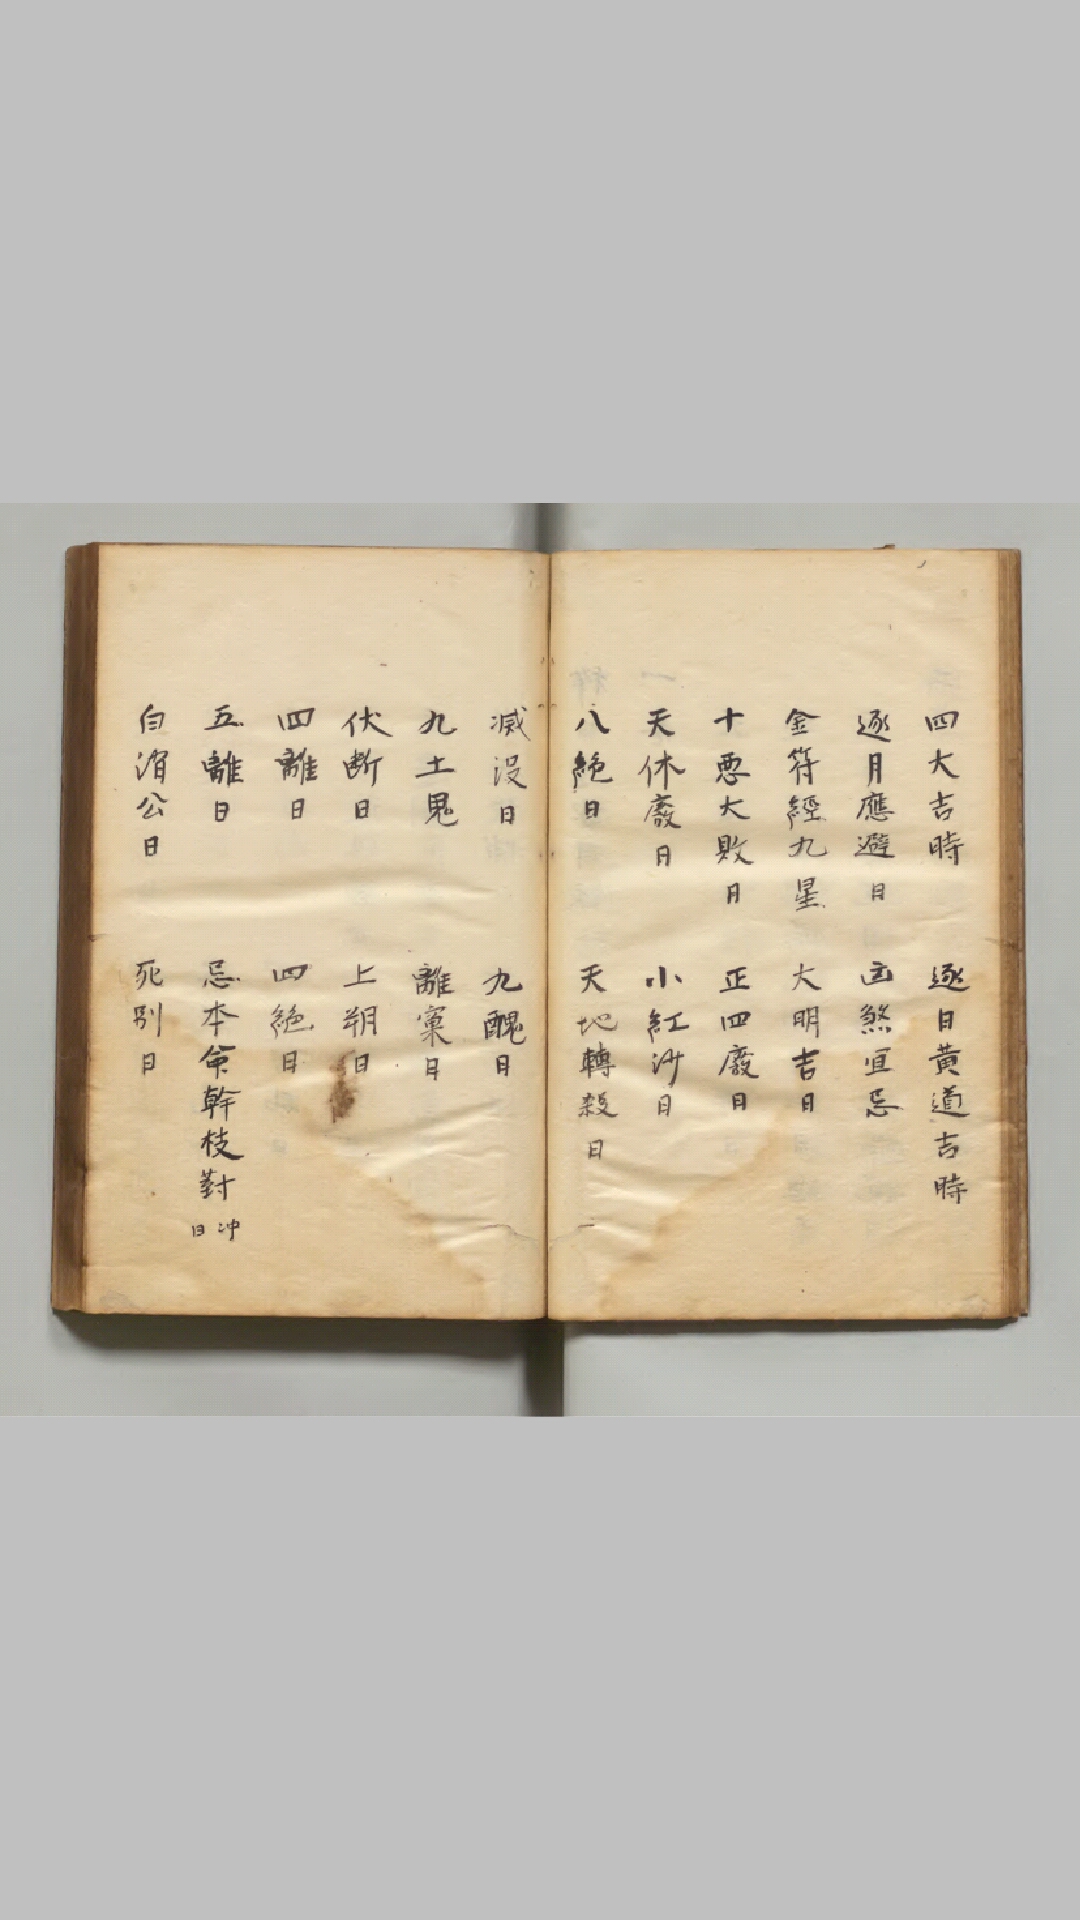 四大吉時　逐日黃道吉時
逐月應避日　凶煞宜忌
金符經九星　大明吉日
十惡大敗日　正四廢日
天休廢日　小紅沙日
八絶日　天地轉殺日
滅没日　九醜日
九土鬼　離窠日
伏断日　上朔日
四離日　四絶日
五離日　忌本命幹枝對冲日
白濵公日　死别日